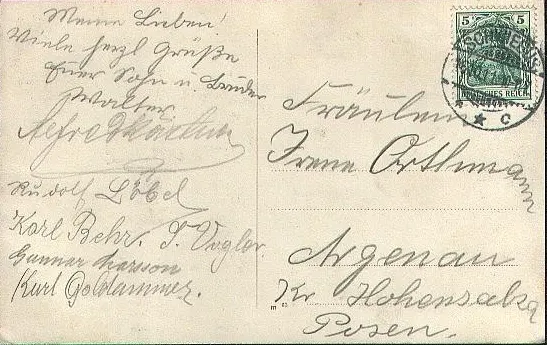 Meine Lieben!
Viele herzl Grüße
Euer Sohn u. Bruder
Walter
Alfred
Rudolf Löbel
Karl Behr. T. Vogler.
Gunnar Larsson
Kurt Goldammer.
5 5
DEUTSCHES REICH
* c
Fräulein
Irene Orthmann
Argenau
Kr Hohensalza
Posen.